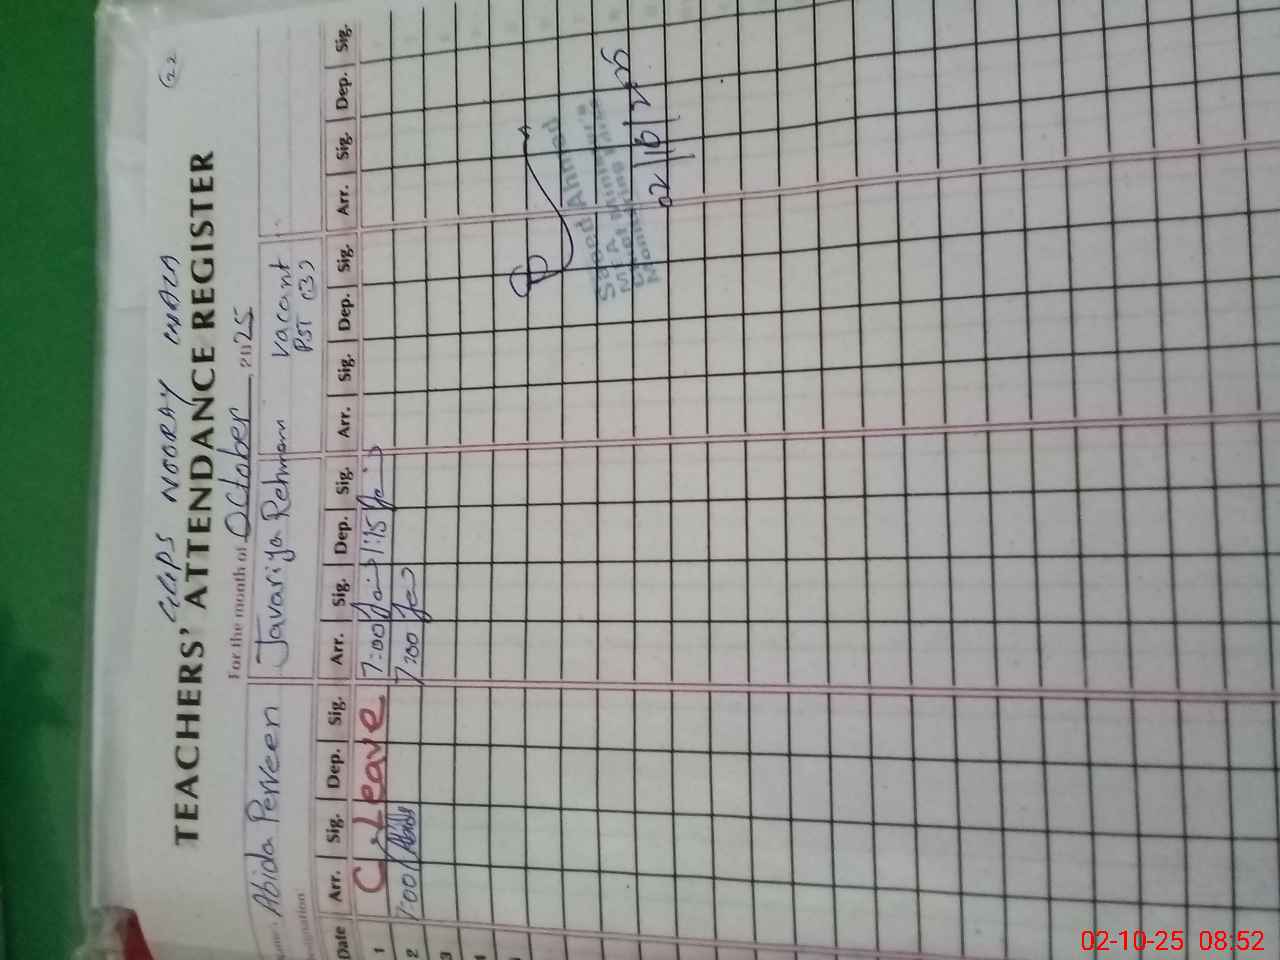 22
GGPS NOORAY WALA
TEACHERS' ATTENDANCE REGISTER
For the month of October, 2025
Abida Perveen Javariya Rehman Vacant
PST (3)
Date Arr. Sig. Dep. Sig. Arr. Sig. Dep. Sig. Arr. Sig. Dep. Sig. Arr. Sig. Dep. Sig.
1 C-Leave 7:00 1:15
2 7:00 Abida 7:00
3
4
Saeed Ahmad
02/10/2025
02-10-25 08:52